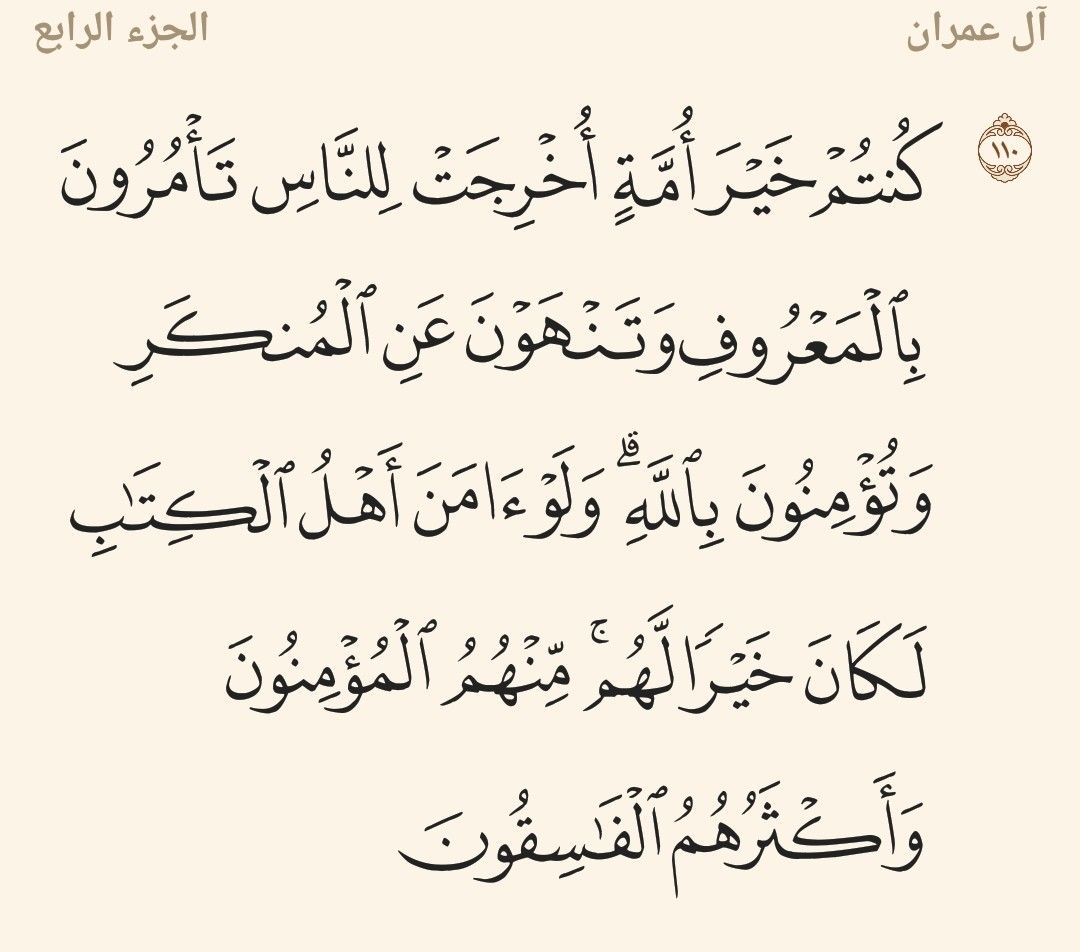 آل عمران
الجزء الرابع
١١٠
كُنتُمۡ خَيۡرَ أُمَّةٍ أُخۡرِجَتۡ لِلنَّاسِ تَأۡمُرُونَ
بِٱلۡمَعۡرُوفِ وَتَنۡهَوۡنَ عَنِ ٱلۡمُنكَرِ
وَتُؤۡمِنُونَ بِٱللَّهِۗ وَلَوۡ ءَامَنَ أَهۡلُ ٱلۡكِتَٰبِ
لَكَانَ خَيۡرٗا لَّهُمۚ مِّنۡهُمُ ٱلۡمُؤۡمِنُونَ
وَأَكۡثَرُهُمُ ٱلۡفَٰسِقُونَ